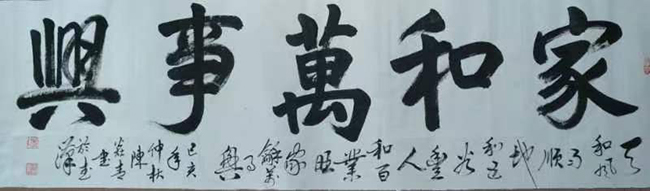 家和萬事興
天和風雨順地利五谷豐人和百業旺家龢萬事興
己亥年仲秋陳
書於武漢